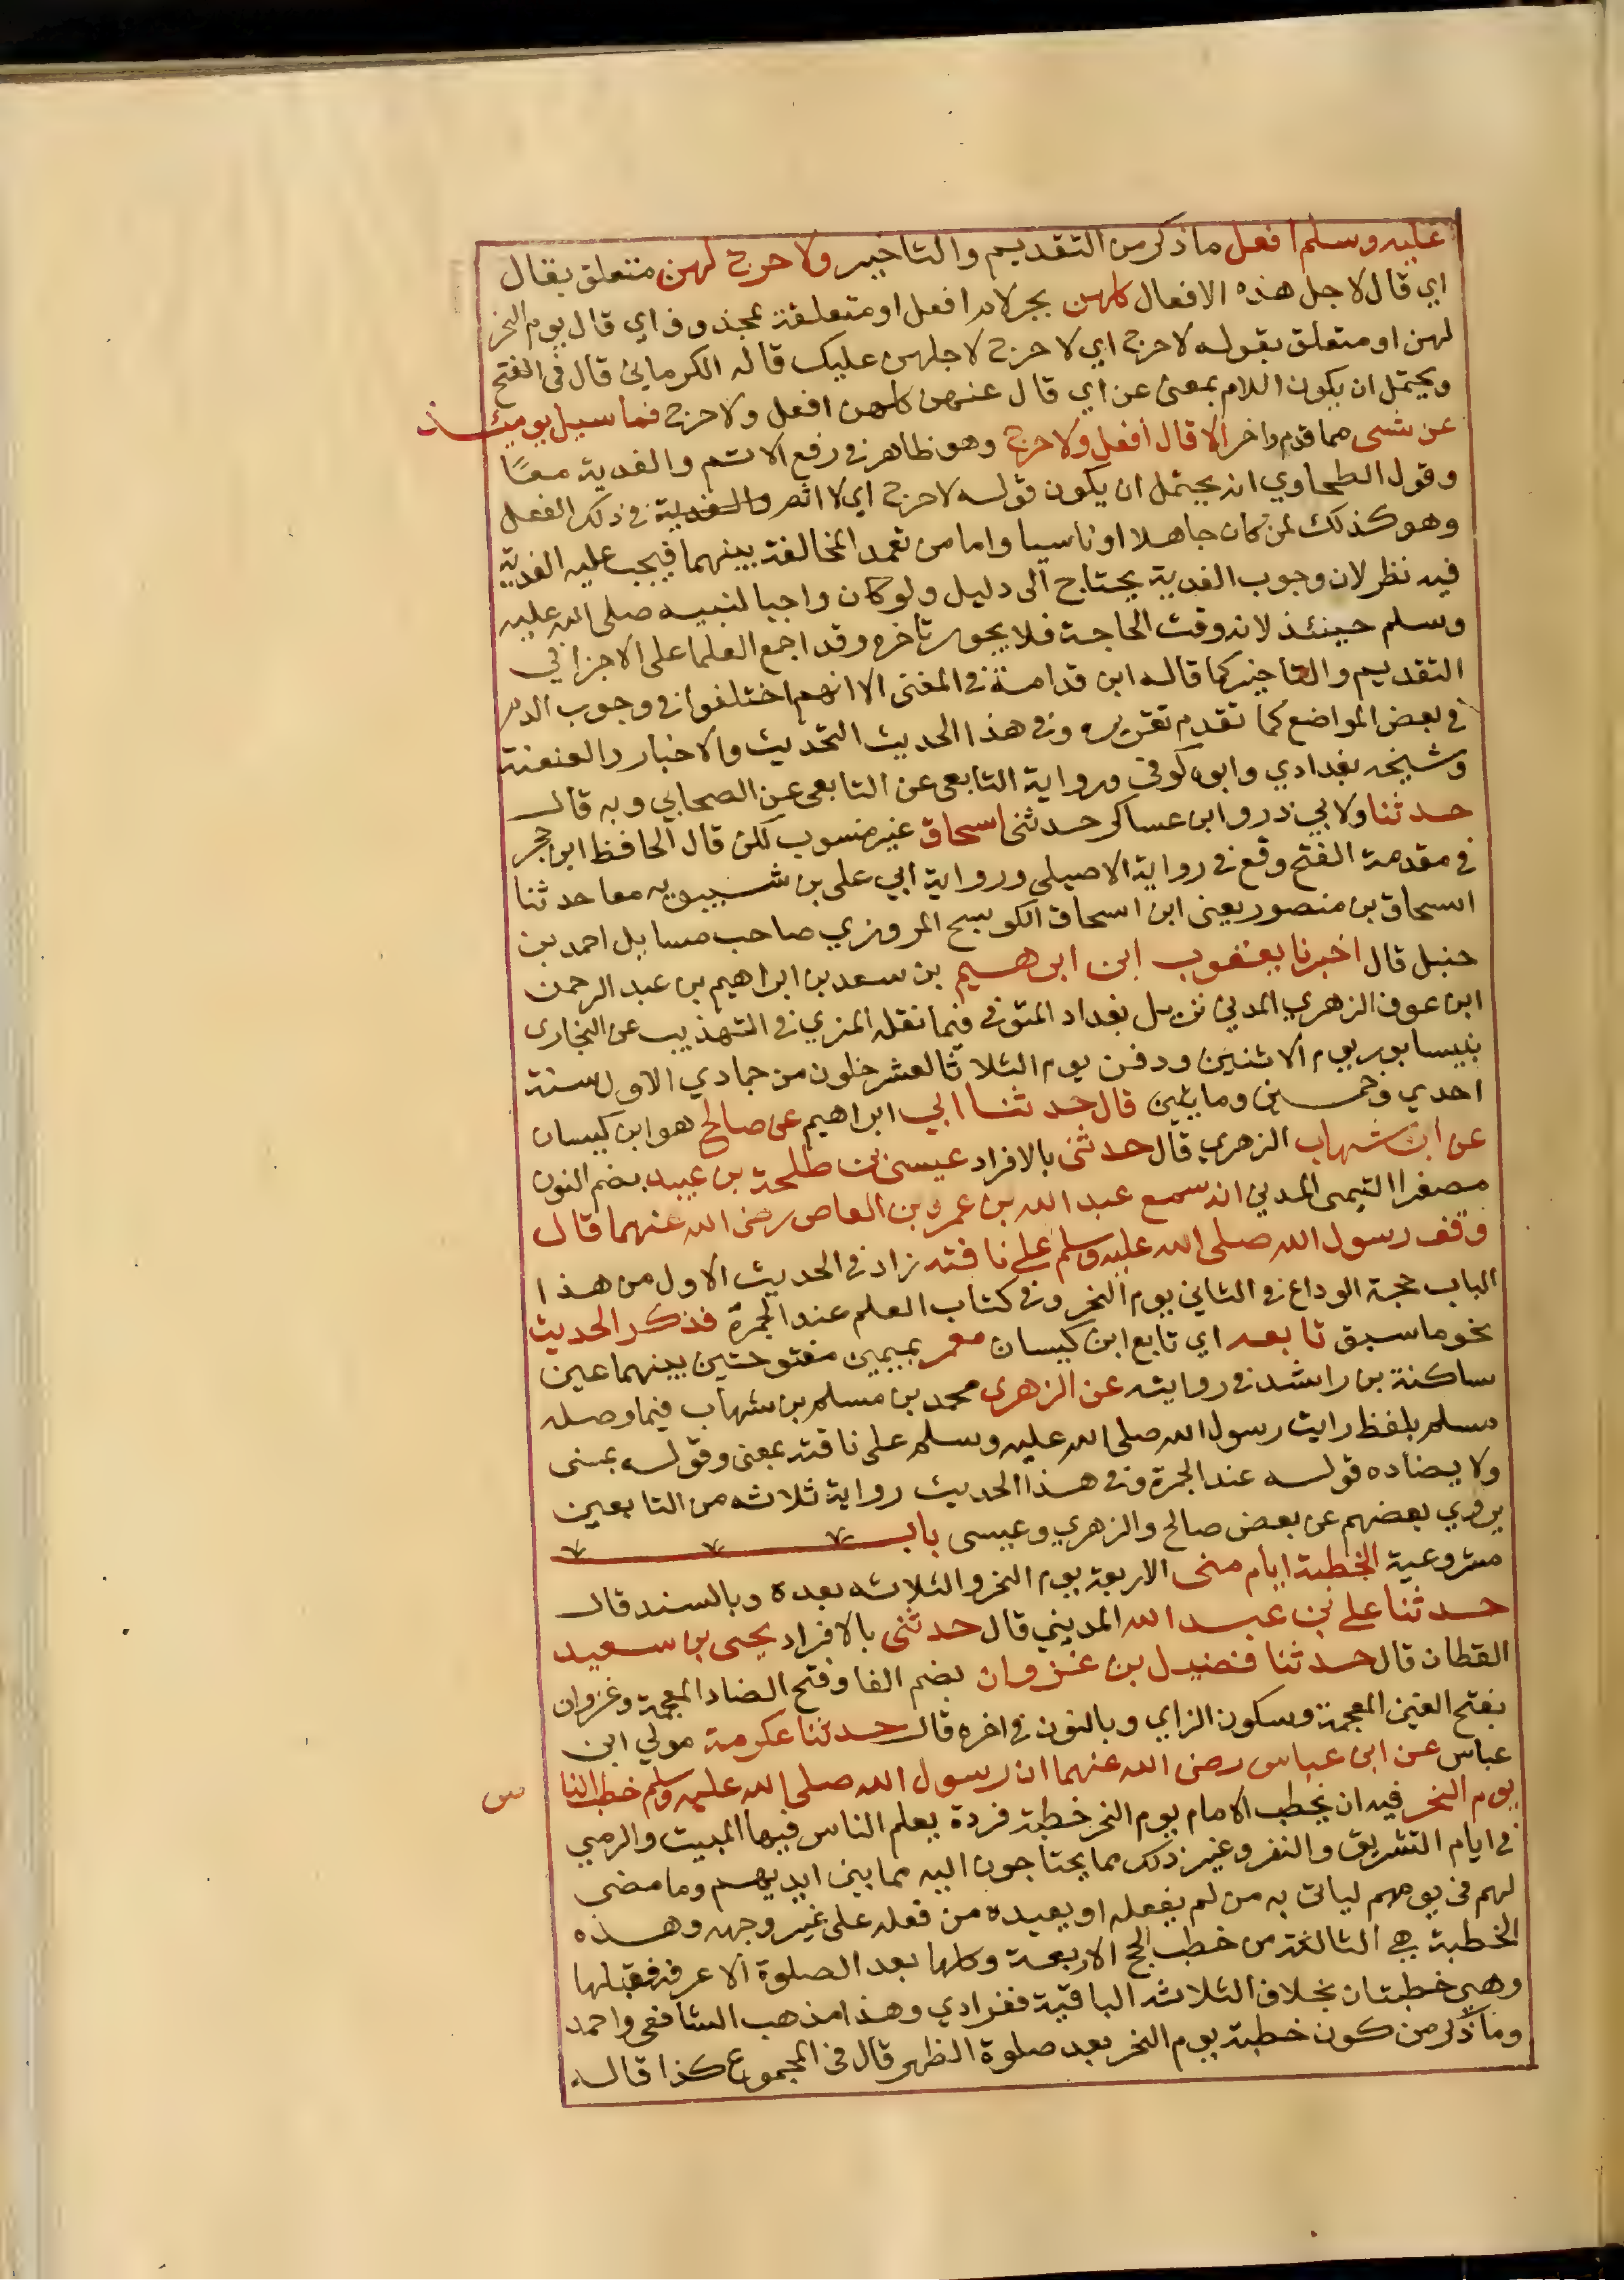 عليه وسلم افعل ما ذكر من التقديم والتاخير ولا حرج لهن متعلق بقال
اي قال لاجل هذه الافعال كلهن بجر لام افعل او متعلقة بمحذوف اي قال يوم النحر
لهن او متعلق بقوله لا حرج اي لا حرج لاجلهن عليك قاله الكرماني قال في الفتح
ويحتمل ان يكون اللام بمعنى عن اي قال عنهن كلهن افعل ولا حرج فما سيل يوميئذ
عن شى مما قدم واخر الا قال افعل ولا حرج وهو ظاهر في رفع الاثم والفدية معًا
وقول الطحاوي انه يحتمل ان يكون قوله لا حرج اي لا اثم والفدية في ذلك الفعل
وهو كذلك لمن كان جاهلا او ناسيا واما من تعمد المخالفة بينهما فيجب عليه الفدية
فيه نظر لان وجوب الفدية يحتاج الى دليل ولو كان واجبا لنبيه صلى الله عليه
وسلم حينئذ لانه وقت الحاجة فلا يجور تاخره وقد اجمع العلما على الاجزا في
التقديم والتاخير كما قاله ابن قدامة في المغنى الا انهم اختلفوا في وجوب الدم
في بعض المواضع كما تقدم تقريره وفي هذا الحديث التحديث والاخبار والعنعنة
وشيخه بغدادي وابوه كوفى ورواية التابعى عن التابعى عن الصحابي وبه قال
حدثنا ولابي ذر وابن عساكر حدثنى اسحاق غير منسوب لكن قال الحافظ ابن حجر
في مقدمة الفتح وقع في رواية الاصيلي ورواية ابي على بن شبويه معا حدثنا
اسحاق بن منصور يعنى ابن اسحاق الكوسج المروزي صاحب مسايل احمد بن
حنبل قال اخبرنا يعقوب ابن ابرهيم بن سعد بن ابراهيم بن عبد الرحمن
ابن عوف الزهري المدني نزيل بغداد المتوفى فيما نقله المزي في التهذيب عن البخارى
بنيسابور يوم الاثنين ودفن يوم الثلاثا لعشر خلون من جمادي الاول سنة
احدي وخمسين ومايتين قال حدثنا ابي ابراهيم عن صالح هو ابن كيسان
عن ابن شهاب الزهري قال حدثنى بالافراد عيسى بن طلحة بن عبيد بضم النون
مصغرا التيمى المدني انه سمع عبد الله بن عمرو بن العاص رضى الله عنهما قال
وقف رسول الله صلى الله عليه وسلم على ناقته زاد في الحديث الاول من هذا
الباب حجة الوداع في الثاني يوم النحر وفي كتاب العلم عند الجمرة فذكر الحديث
نحو ما سبق تابعه اي تابع ابن كيسان معمر بميمين مفتوحتين بينهما عين
ساكنة بن راشد في روايته عن الزهرى محمد بن مسلم بن شهاب فيما وصله
مسلم بلفظ رايت رسول الله صلى الله عليه وسلم على ناقته بمعنى وقوله بمنى
ولا يضاده قوله عند الجمرة وفي هذا الحديث رواية ثلاثه من التابعين
يروي بعضهم عن بعض صالح والزهري وعيسى باب
مشروعية الخطبة ايام منى الاربعة يوم النحر والثلاثه بعده وبالسند قال
حدثنا على بن عبد الله المديني قال حدثنى بالافراد يحيى بن سعيد
القطان قال حدثنا فضيل بن غزوان بضم الفا وفتح الضاد المعجمة وغزوان
بفتح الغين المعجمة وسكون الزاي وبالنون في اخره قال حدثنا عكرمة مولي ابن
عباس عن ابن عباس رضى الله عنهما ان رسول الله صلى الله عليه وسلم خطب الناس
يوم النحر فيه ان يخطب الامام يوم النحر خطبة فردة يعلم الناس فيها المبيت والرمي
في ايام التشريق والنفر وغير ذلك مما يحتاجون اليه مما بين ايديهم وما مضى
لهم في يومهم لياتى به من لم يفعله او يعيده من فعله على غير وجهه وهذه
الخطبة هي الثالثة من خطب الحج الاربعة وكلها بعد الصلوة الا عرفة فقبلها
وهى خطبتان بخلاف الثلاثه الباقية ففرادي وهذا مذهب الشافعى واحمد
وما ذكر من كون خطبة يوم النحر بعد صلوة الظهر قال في المجموع كذا قاله